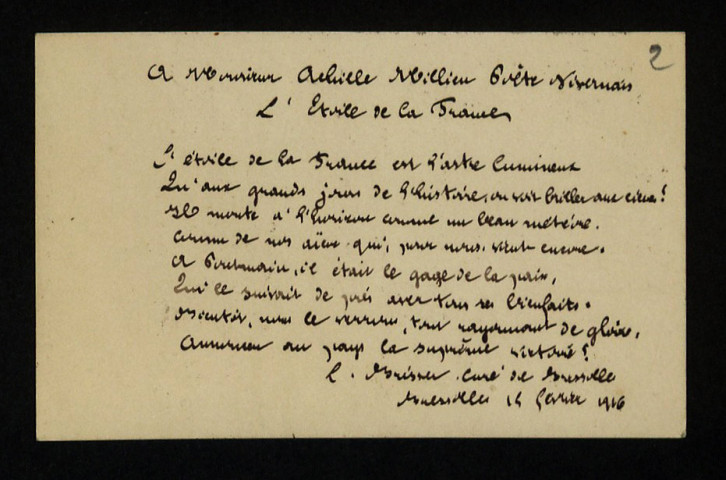 2
A Monsieur Achille Millien Poète Nivernais
L' Etoile de la France
L' étoile de la France est l'astre lumineux
Qu'aux grands jours de l'histoire, on voit briller aux cieux !
Il monte à l'horizon comme un beau météore.
Connu de nos aïeux qui, pour nous, vient encore.
A , il était le gage de la paix,
Qui le suivait de près avec tous ses bienfaits.
Bientôt, nous le verrons, tout rayonnant de gloire,
Annoncer au pays la suprême victoire !
L. curé de
février 1916